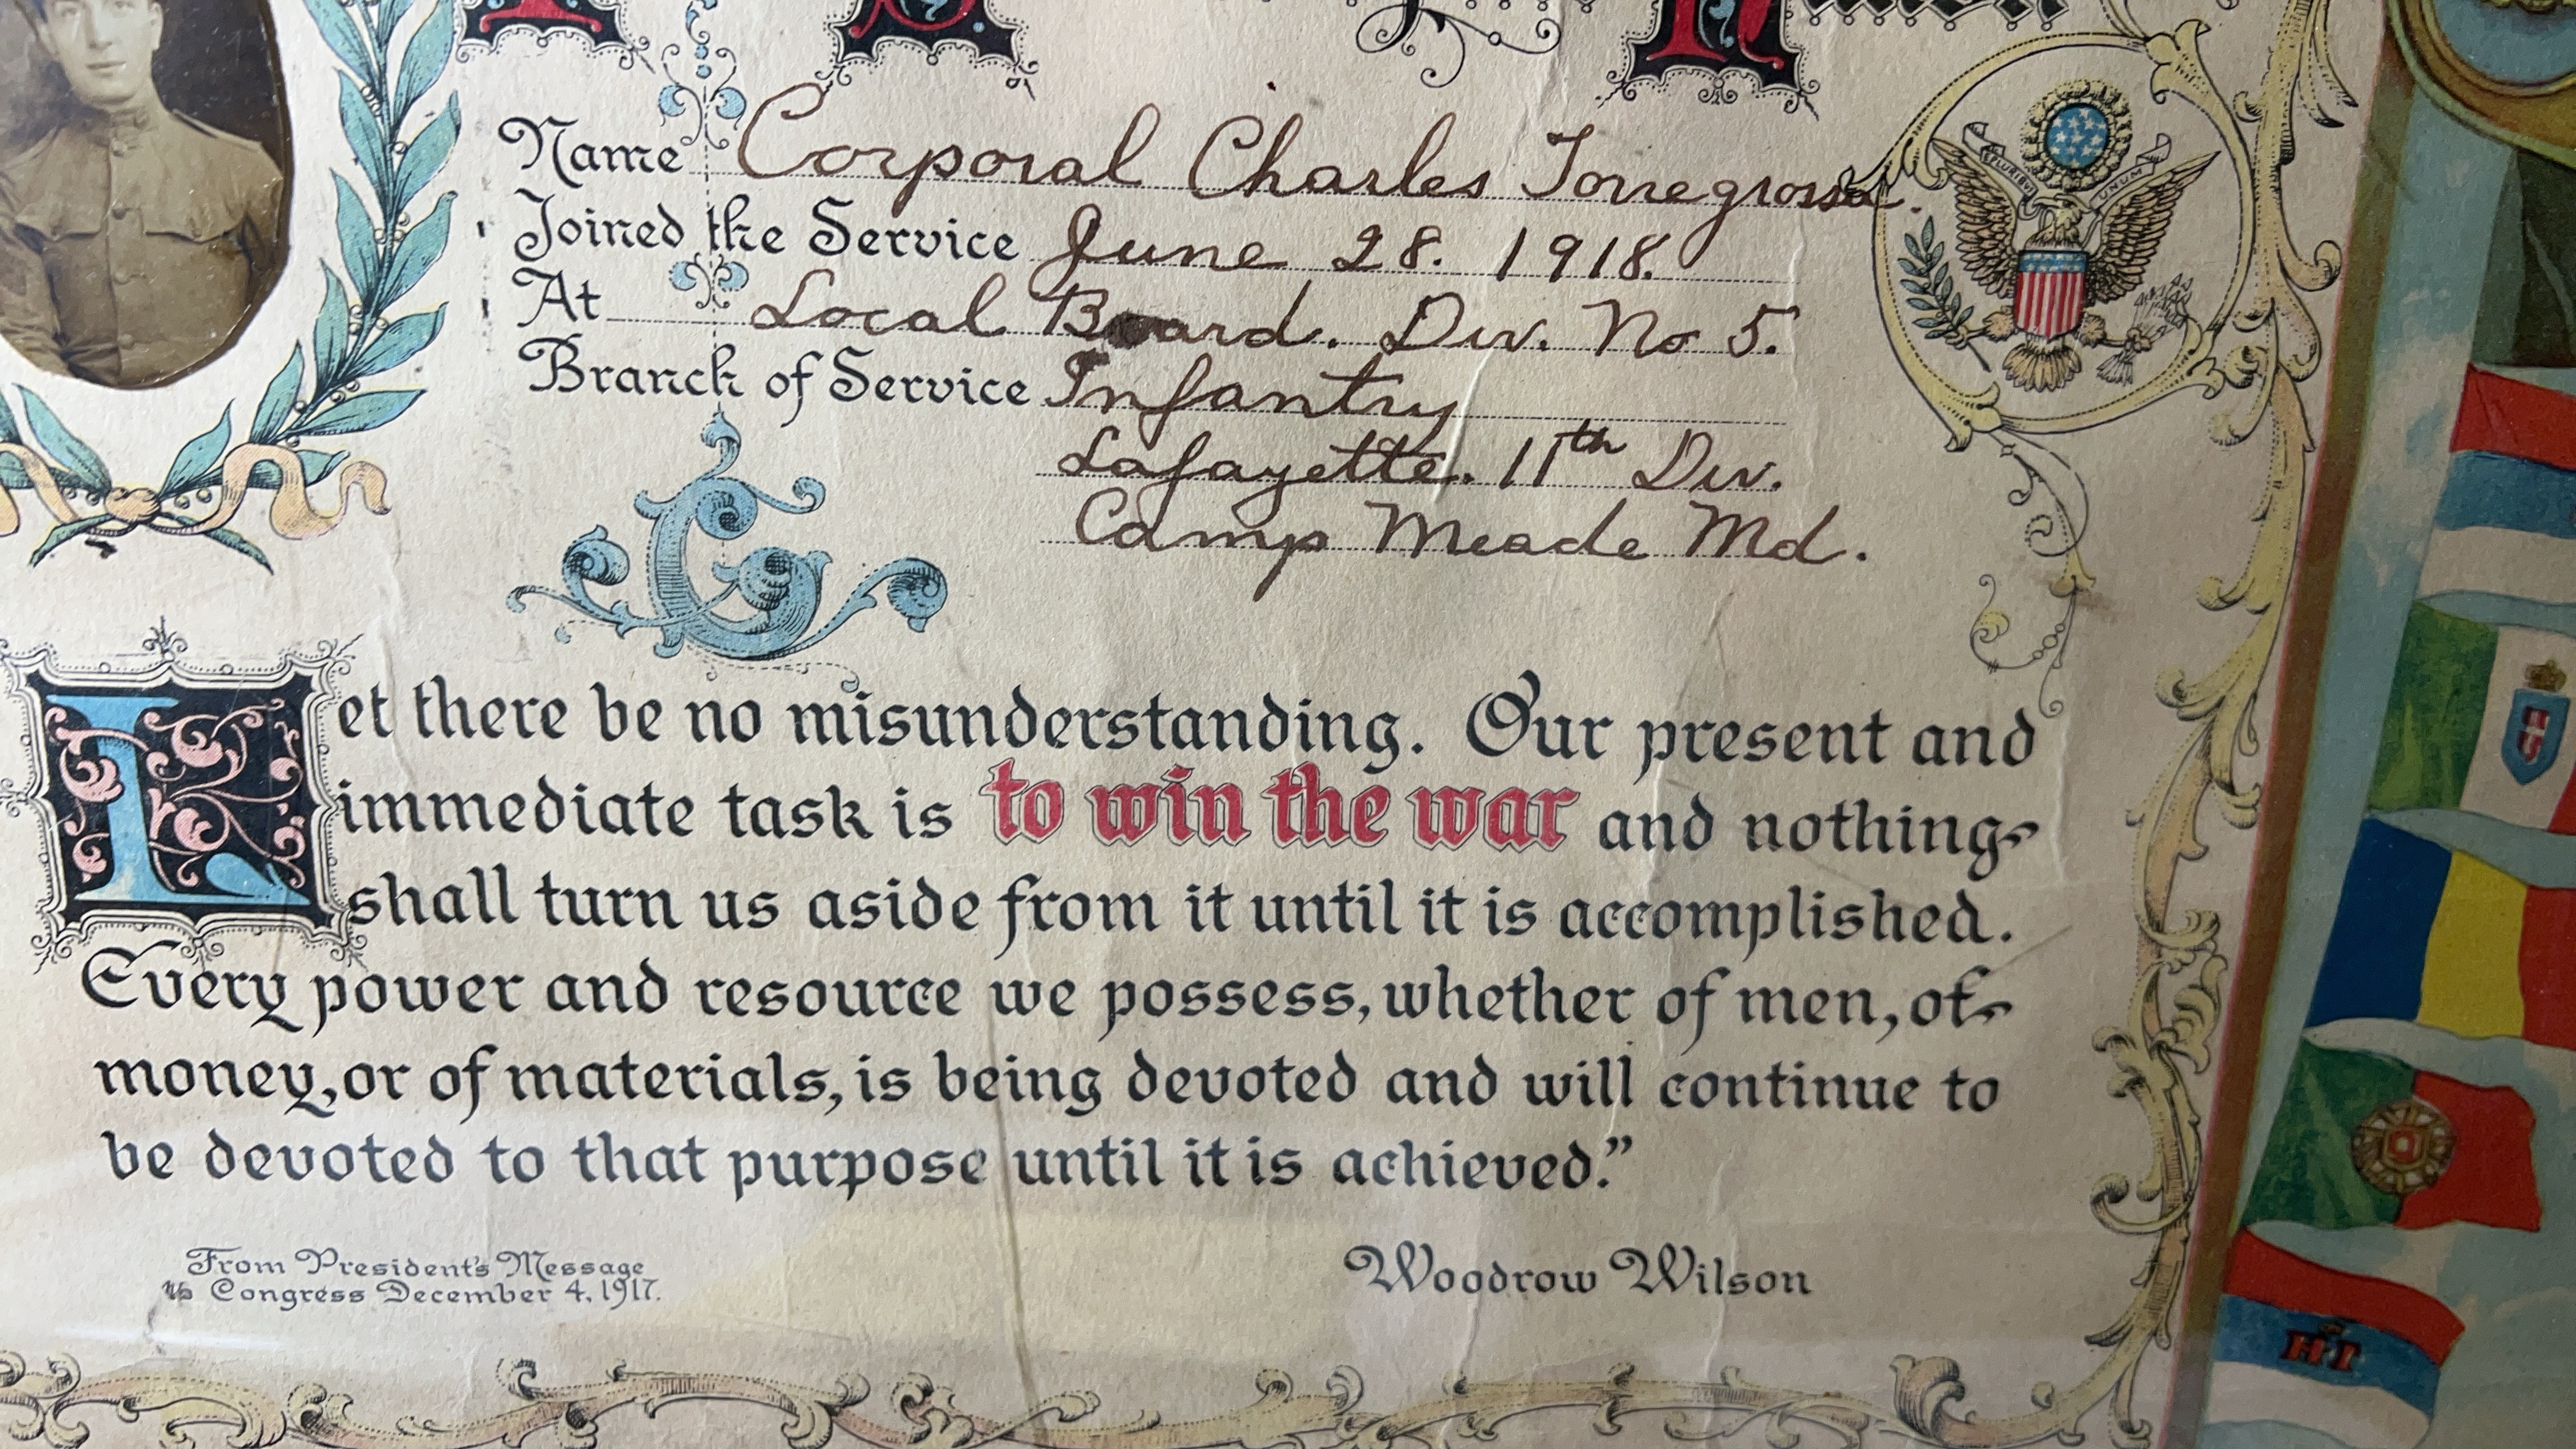 Name Corporal Charles Torregrossa.
Joined the Service June 28. 1918.
At Local Board. Div. No 5.
Branch of Service Infantry
Lafayette. 11th Div.
Camp Meade Md.
E PLURIBUS UNUM
Let there be no misunderstanding. Our present and
immediate task is to win the war and nothing
shall turn us aside from it until it is accomplished.
Every power and resource we possess, whether of men, of
money, or of materials, is being devoted and will continue to
be devoted to that purpose until it is achieved.”
From President's Message
to Congress December 4, 1917.
Woodrow Wilson